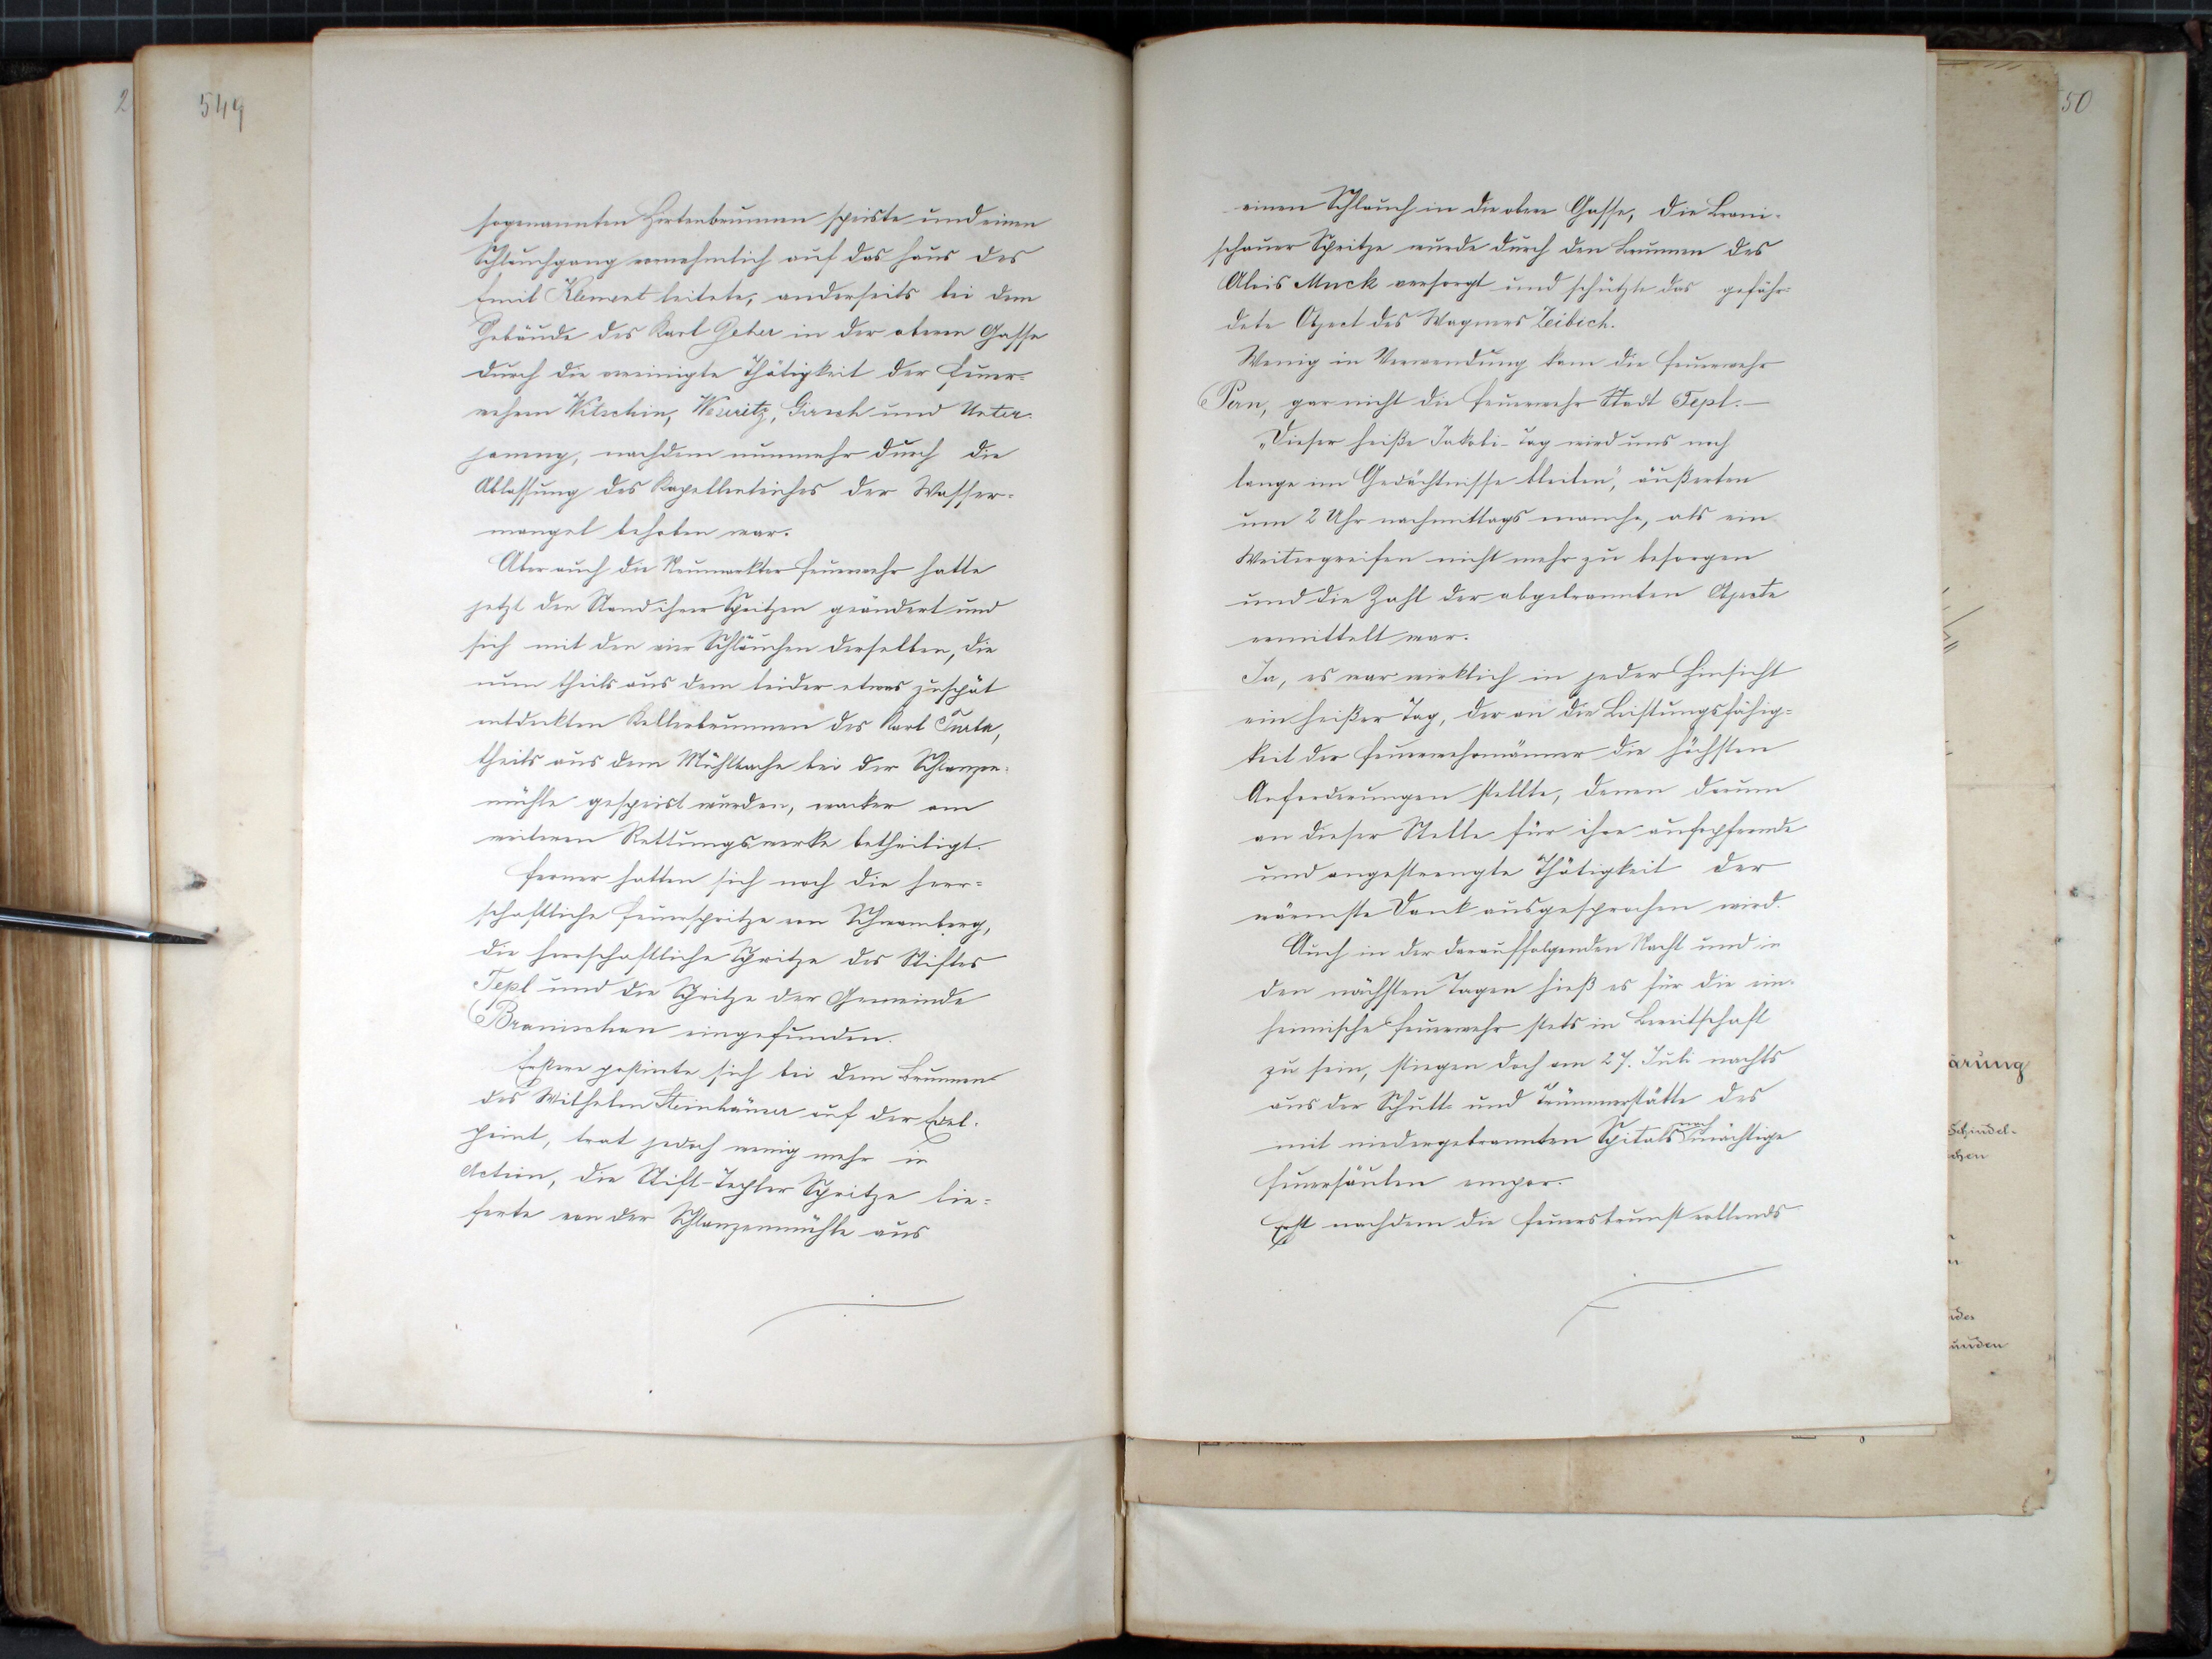 549
sogenannten Hirtenbrunnen speiste und einen
Schlauchgang vornehmlich auf das Haus des
Emil Klement leitete, anderseits bei dem
Gebäude des Karl Geber in der oberen Gasse
durch die vereinigte Thätigkeit der Feuer-
wehren Witschin, Weseritz, Girsch und Unter-
jamny, nachdem nunmehr durch die
Ablassung des Kapellenteiches der Wasser-
mangel behoben war.
Aber auch die Neumarkter Feuerwehr hatte
jetzt den Stand ihrer Spritzen geändert und
sich mit den vier Schläuchen derselben, die
nun theils aus dem leider etwas zuspät
entdeckten Kellerbrunnen des Karl
theils aus dem Mühlbache bei der Schlanzen-
mühle gespeist wurden, wacker am
weiteren Rettungswerke betheiligt.
Ferner hatten sich noch die herr-
schaftliche Feuerspritze von Schwamberg,
die herrschaftliche Spritze des Stiftes
Tepl und die Spritze der Gemeinde
Branischau eingefunden.
Erstere postierte sich bei dem Brunnen
des Wilhelm Steinhäuser auf der
peint, trat jedoch wenig mehr in
Action, die Stift-Tepler Spritze lie-
ferte von der Schlanzenmühle aus
50
einen Schlauch in die obere Gasse, die Brani-
schauer Spritze wurde durch den Brunnen des
Alois Muck versorgt und schützte das gefähr-
dete Object des Wagners Zeibich.
Wenig in Verwendung kam die Feuerwehr
Pern, gar nicht die Feuerwehr Stadt Tepl. —
„Dieser heiße Jakobi-Tag wird uns noch
lange im Gedächtnisse bleiben", äußerten
um 2 Uhr nachmittags manche, als ein
Weitergreifen nicht mehr zu besorgen
und die Zahl der abgebrannten Objecte
ermittelt war.
Ja, es war wirklich in jeder Hinsicht
ein heißer Tag, der an die Leistungsfähig-
keit der Feuerwehrmänner die höchsten
Anforderungen stellte, denen darum
an dieser Stelle für ihre aufopfernde
und angestrengte Thätigkeit der
wärmste Dank ausgesprochen wird.
Auch in der darauffolgenden Nacht und in
den nächsten Tagen hieß es für die ein-
heimische Feuerwehr stets in Bereitschaft
zu sein, stiegen doch am 27. Juli nachts
aus der Schutt- und Trümmerstätte des
mit niedergebrannten Spitals noch mächtige
Feuersäulen empor.
Erst nachdem die Feuersbrunst vollends
ärung
Schindel-
chen
unden